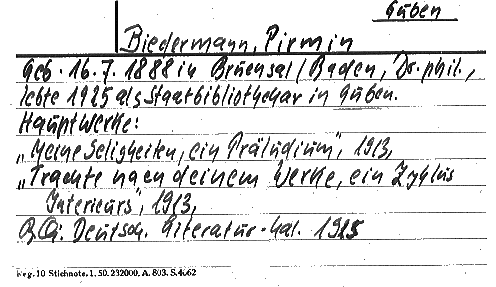 Guben
Biedermann, Pirmin
Geb. 16.7.1888 in Bruchsal/Baden, Dr. phil.,
lebte 1925 als Staatbibliothekar in Guben.
Hauptwerke:
„Meine Seligkeiten, ein Präludium", 1913,
„Trachte nach deinem Werke, ein Zyklus
Interieurs", 1913,
BQ: Deutsch. Literatur-Kal. 1925
Reg. 10 Stichnote. 1. 50. 232000. A. 803. S. 4662